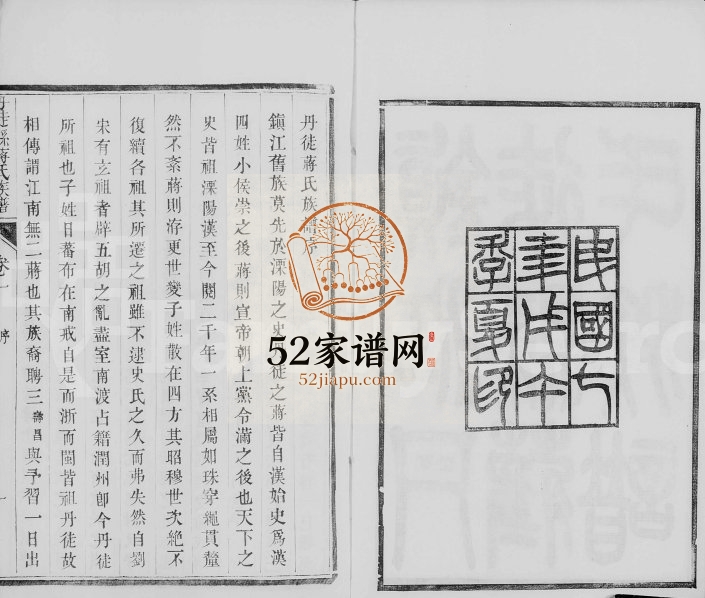 民國七
年戊午
季夏印
丹徒蔣氏族譜序
鎭江舊族莫先於溧陽之史徒之蔣皆自漢始史爲漢
四姓小侯崇之後蔣則宣帝朝上黨令滿之後也天下之
史皆祖溧陽漢至今閱二千年一系相屬如珠穿繩貫釐
然不紊蔣則洊更世變子姓散在四方其昭穆世次絶不
復續各祖其所遷之祖雖不逮史氏之久而弗失然自劉
宋有玄祖者辟五胡之亂盡室南渡占籍潤州卽今丹徒
所祖也子姓日蕃布在南戒自是而浙而閩皆祖丹徒故
相傳謂江南無二蔣也其族裔聘三壽昌與予習一日出
丹徒縣蔣氏族譜
卷一
序
一
52家谱网
52jiapu.com